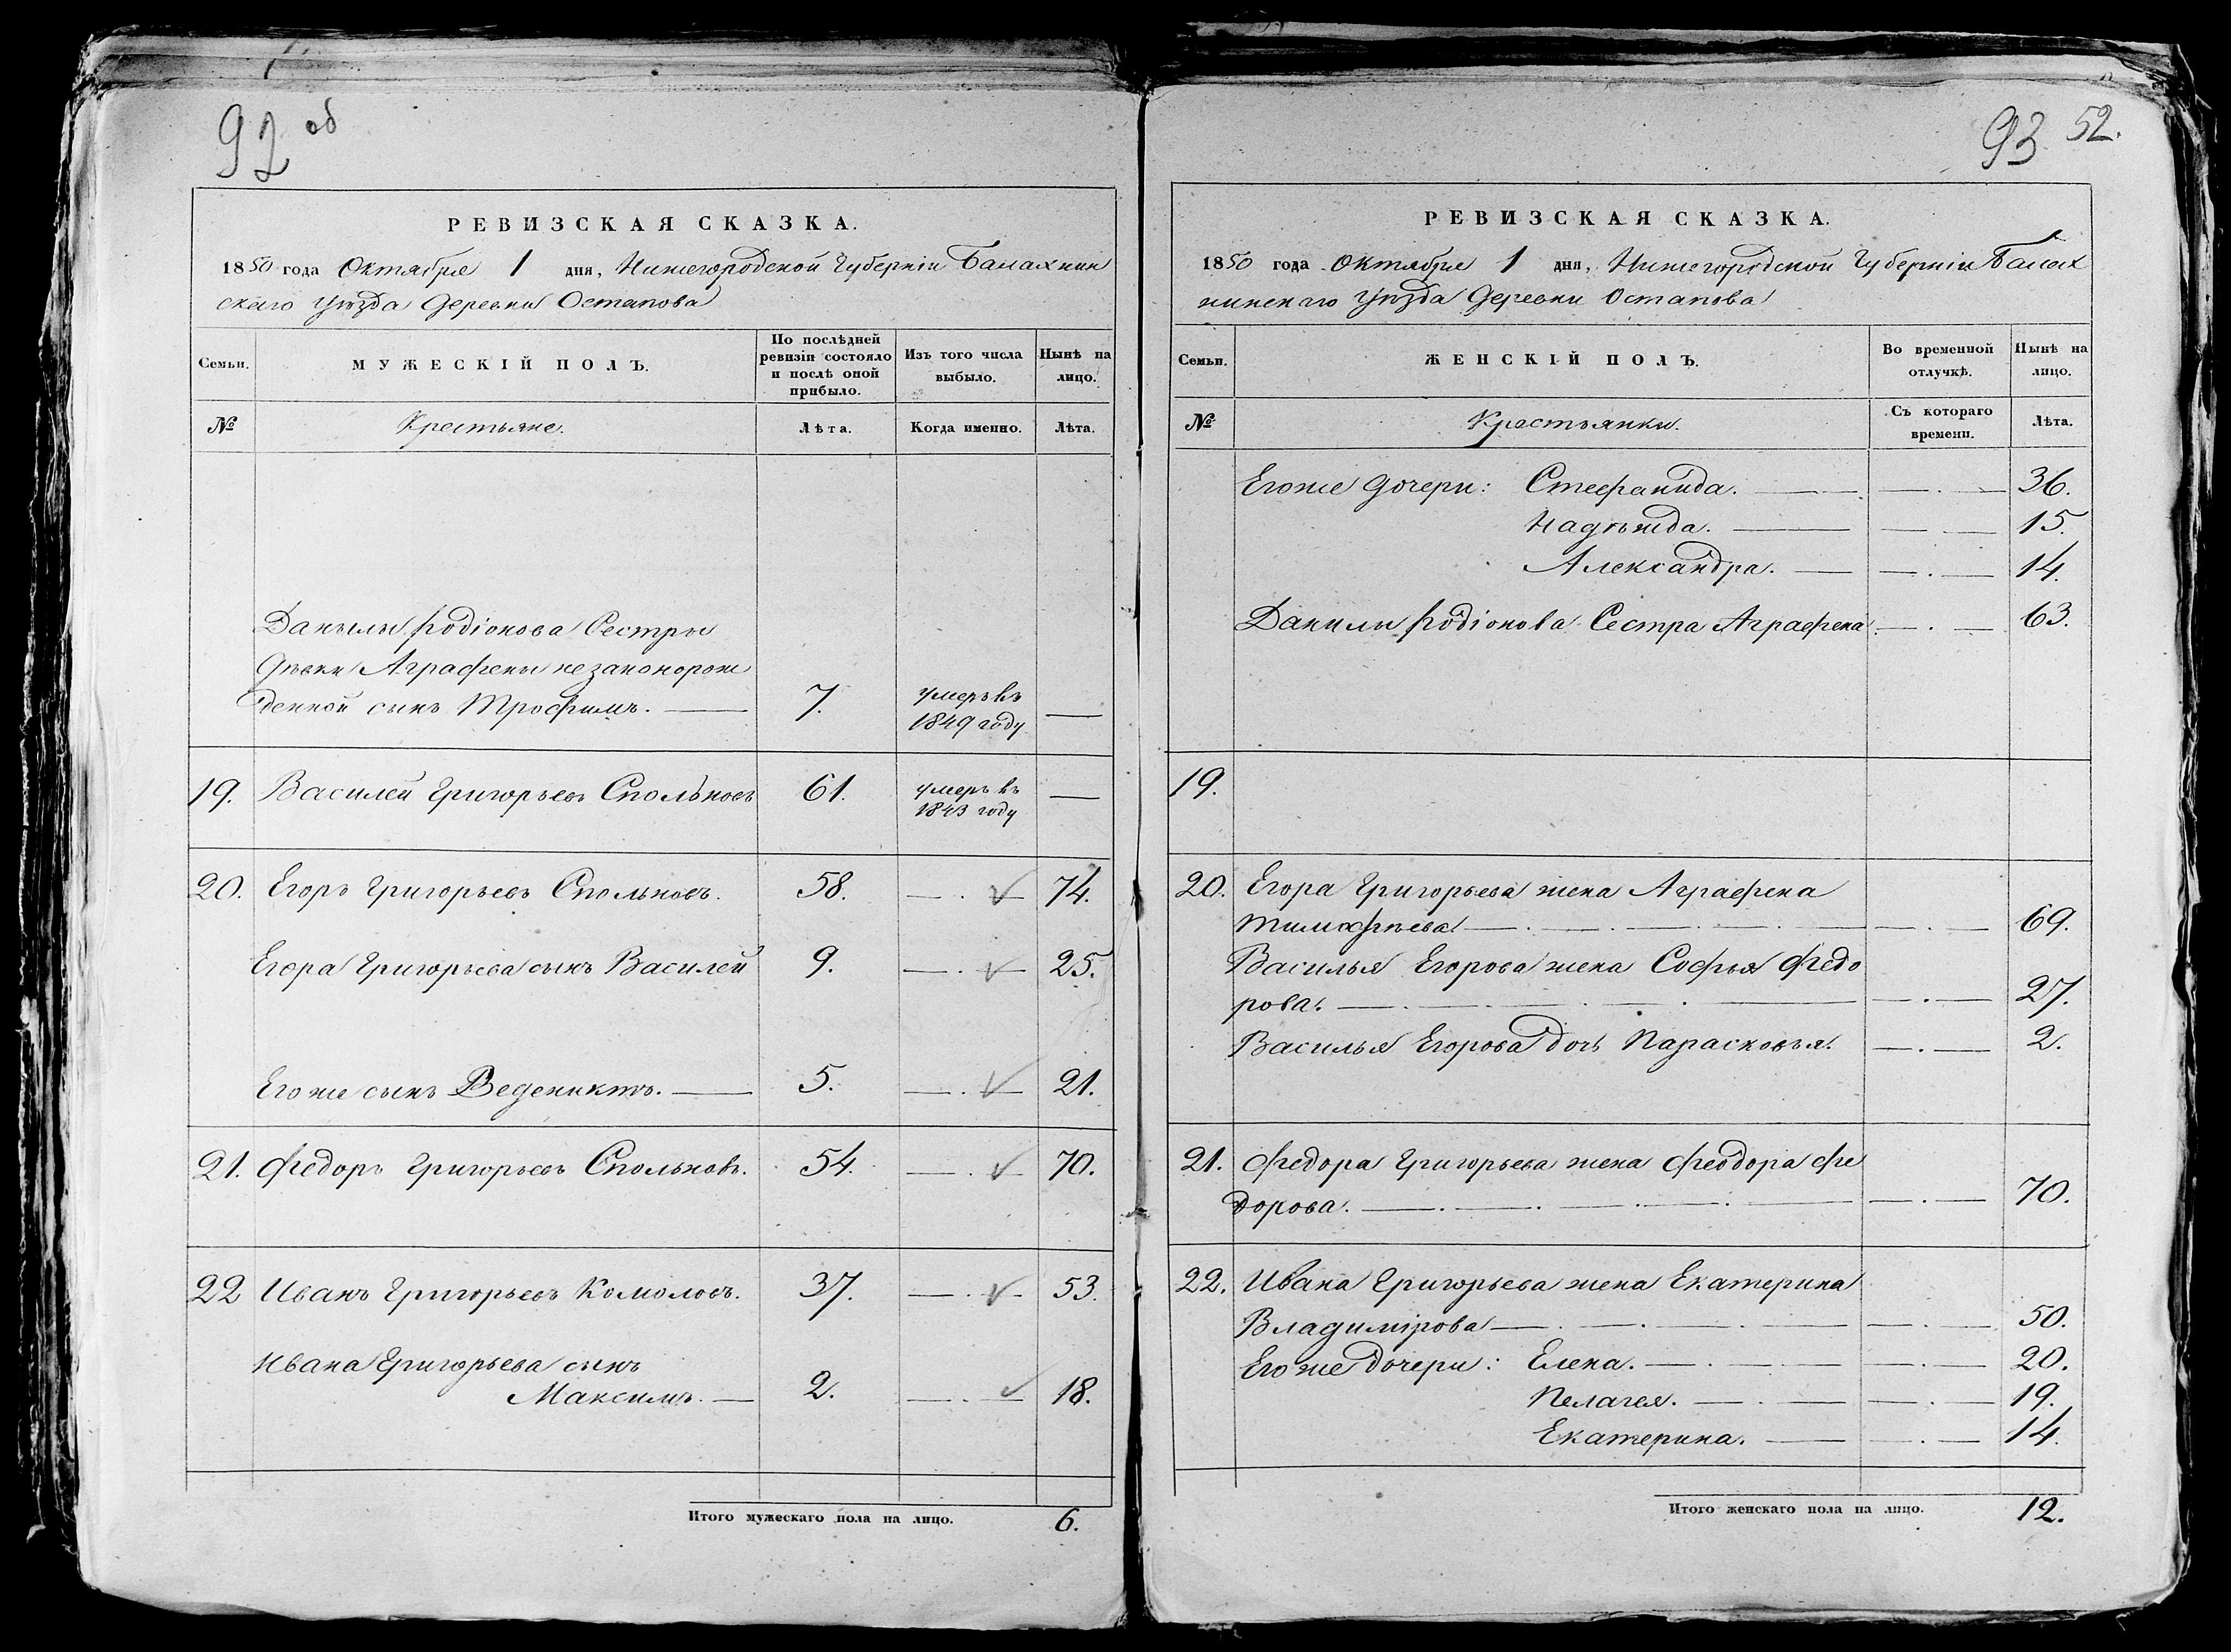 92 об
РЕВИЗСКАЯ СКАЗКА.
1850 года Октября 1 дня, Нижегородской Губерніи Балахнин
скаго Уѣзда Деревни Остапова
Семьи. МУЖЕСКІЙ ПОЛЪ. По послѣдней ревизіи состояло и послѣ оной прибыло. Изъ того числа выбыло. Нынѣ на лицо.
№ Крестьяне. Лѣта. Когда именно. Лѣта.
Данилы Родіонова Сестры
Дѣвки Аграфены незаконорож
денной сынъ Трофимъ. — 7. умеръ въ 1849 году —
19. Василей Григорьевъ Спольновъ 61. умеръ въ 1843 году —
20. Егоръ Григорьевъ Спольновъ. 58. — . — 74.
Егора Григорьева сынъ Василей 9. — . — 25.
Его же сынъ Ведениктъ. — 5. — . — 21.
21. Федоръ Григорьевъ Спольновъ. 54. — . — 70.
22 Иванъ Григорьевъ Комоловъ. 37. — . — 53.
Ивана Григорьева сынъ
Максимъ. — 2. — . — 18.
Итого мужескаго пола на лицо. 6.
93 52.
РЕВИЗСКАЯ СКАЗКА.
1850 года Октября 1 дня, Нижегородской Губерніи Балах
нинскаго Уѣзда Деревни Остапова
Семьи. ЖЕНСКІЙ ПОЛЪ. Во временной отлучкѣ. Нынѣ на лицо.
№ Крестьянки. Съ котораго времени. Лѣта.
Его же дочери: Стефанида. — — . — 36.
Надѣжда. — — . — 15.
Александра. — — . — 14.
Данилы Родіонова Сестра Аграфена — . — 63.
19.
20. Егора Григорьева жена Аграфена
Тимофѣева — . — 69.
Василья Егорова жена Софья Федо
рова. — . — 27.
Василья Егорова дочь Парасковья. — . — 2.
21. Федора Григорьева жена Феодора Фе
дорова. — . — 70.
22. Ивана Григорьева жена Екатерина
Владимірова — . — 50.
Его же дочери: Елена. — . — 20.
Пелагея. — . — 19.
Екатерина. — . — 14.
Итого женскаго пола на лицо. 12.